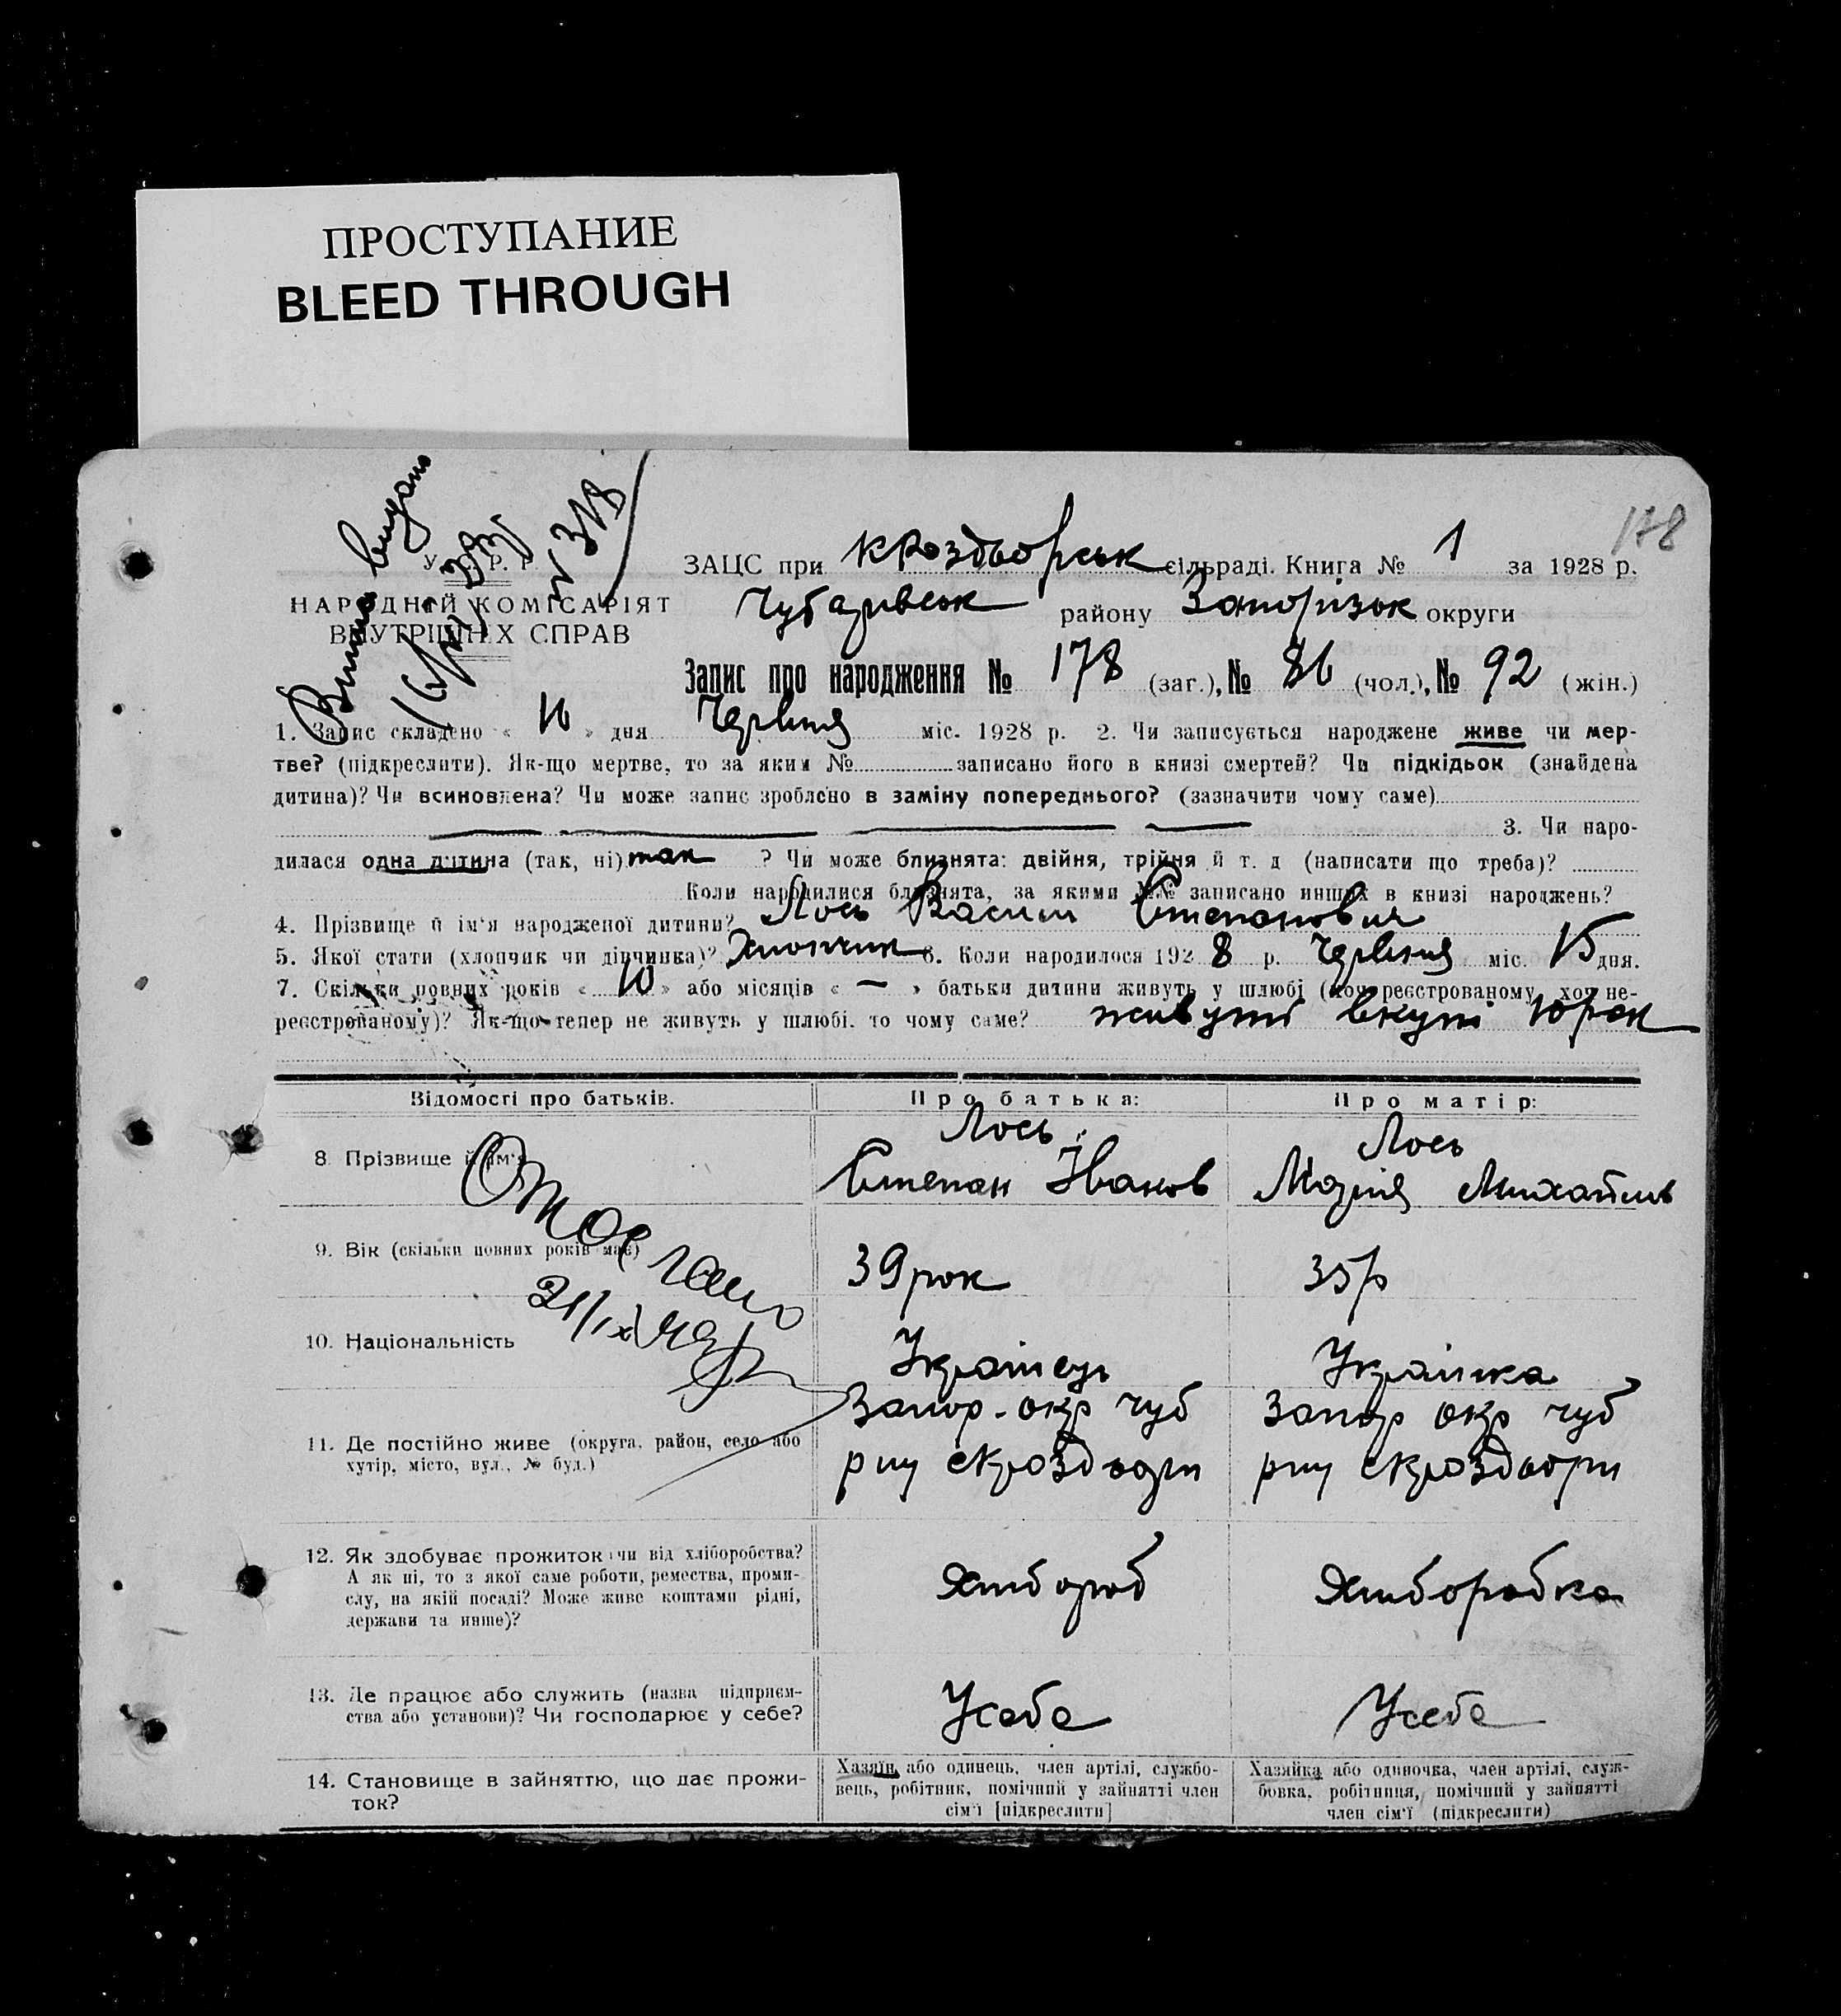 ПРОСТУПАНИЕ
BLEED THROUGH
178
У. С. Р. Р.
НАРОДНІЙ КОМІСАРІЯТ
ВНУТРІШНІХ СПРАВ
Витяг видано
ЗАЦС при Кроздворськ сільраді. Книга № 1 за 1928 р.
Чубарівськ району Запорізьк округи
Запис про народження № 178 (заг.), № 86 (чол.), № 92 (жін.)
1. Запис складено « » дня Червня міс. 1928 р. 2. Чи записується народжене живе чи мер-
тве? (підкреслити). Як-що мертве, то за яким № записано його в книзі смертей? Чи підкідьок (знайдена
дитина)? Чи всиновлена? Чи може запис зроблено в заміну попереднього? (зазначити чому саме)
3. Чи наро-
дилася одна дитина (так, ні) так ? Чи може близнята: двійня, трійня й т. д (написати що треба)?
Коли народилися близнята, за якими №№ записано инших в книзі народжень?
4. Прізвище й ім'я народженої дитини? Лось Васил Степанович
5. Якої стати (хлопчик чи дівчинка)? Хлопчик 6. Коли народилося 192 8 р. Червня міс. 15 дня.
7. Скільки повних років « 10 » або місяців « — » батьки дитини живуть у шлюбі (хоч реєстрованому, хоч не-
реєстрованому)? Як-що тепер не живуть у шлюбі, то чому саме? живуть вкупі 10 рок
Відомості про батьків. Про батька: Про матір:
8. Прізвище й ім'я Лось Степан Іванов Лось Марія Михайлів
9. Вік (скільки повних років має) 39 рок 35 р
10. Національність Українець Українка
11. Де постійно живе (округа, район, село або
хутір, місто, вул., № буд.)
Запор. окр Чуб
рну с Кроздвори
Запор окр Чуб
рну с Кроздвори
12. Як здобуває прожиток: чи від хліборобства?
А як ні, то з якої саме роботи, ремества, проми-
слу, на якій посаді? Може живе коштами рідні,
держави та инше)?
Хлибороб Хлиборобка
13. Де працює або служить (назва підприєм-
ства або установи)? Чи господарює у себе?
Усебе Усебе
14. Становище в зайняттю, що дає прожи-
ток?
Хазяїн, або одинець, член артілі, службо-
вець, робітник, помічний у зайнятті член
сім'ї [підкреслити]
Хазяйка або одиночка, член артілі, служ-
бовка, робітниця, помічний у зайнятті
член сім'ї (підкреслити)